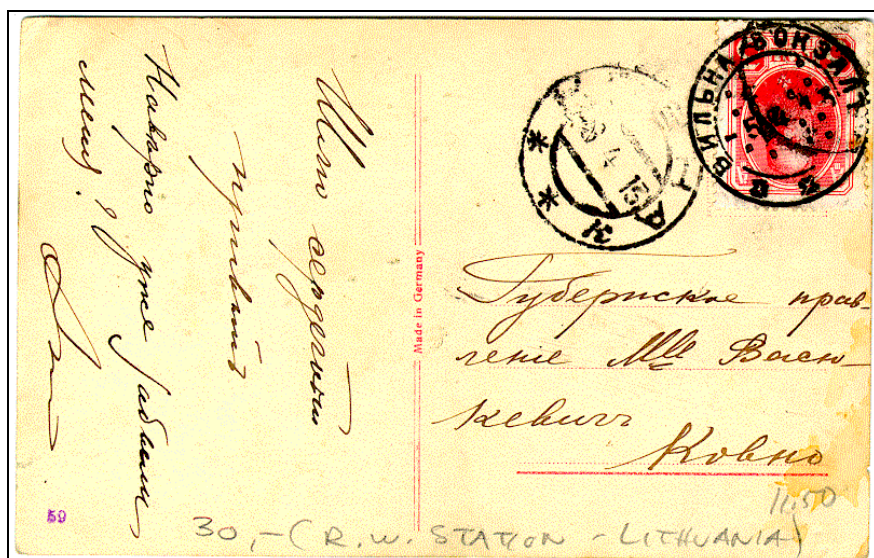 Шлю сердечный
привѣтъ
Наварно уже забыли
меня.
Made in Germany
ВИЛЬНА ВОКЗАЛЪ
4 13
Губернское прав-
ленiе Mlle Васю-
кевичъ
Ковно
59
11.50
30,- (R.W. STATION - LITHUANIA)